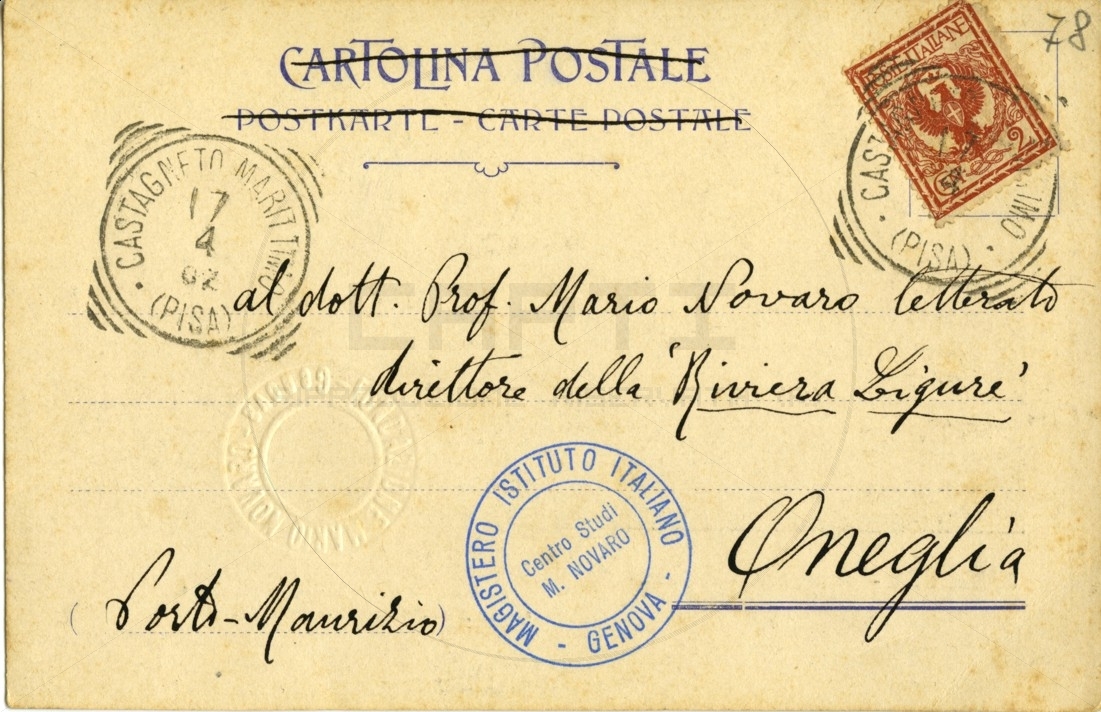 78
CARTOLINA POSTALE
POSTKARTE - CARTE POSTALE
POSTE ITALIANE
2
CASTAGNETO MARITTIMO
17
4
02
(PISA)
CAST IMO
(PISA)
al dott. Prof. Mario Novaro letterato
direttore della "Riviera Ligure"
Oneglia
(Porto-Maurizio)
MAGISTERO ISTITUTO ITALIANO - GENOVA -
Centro Studi
M. NOVARO
CAPTI